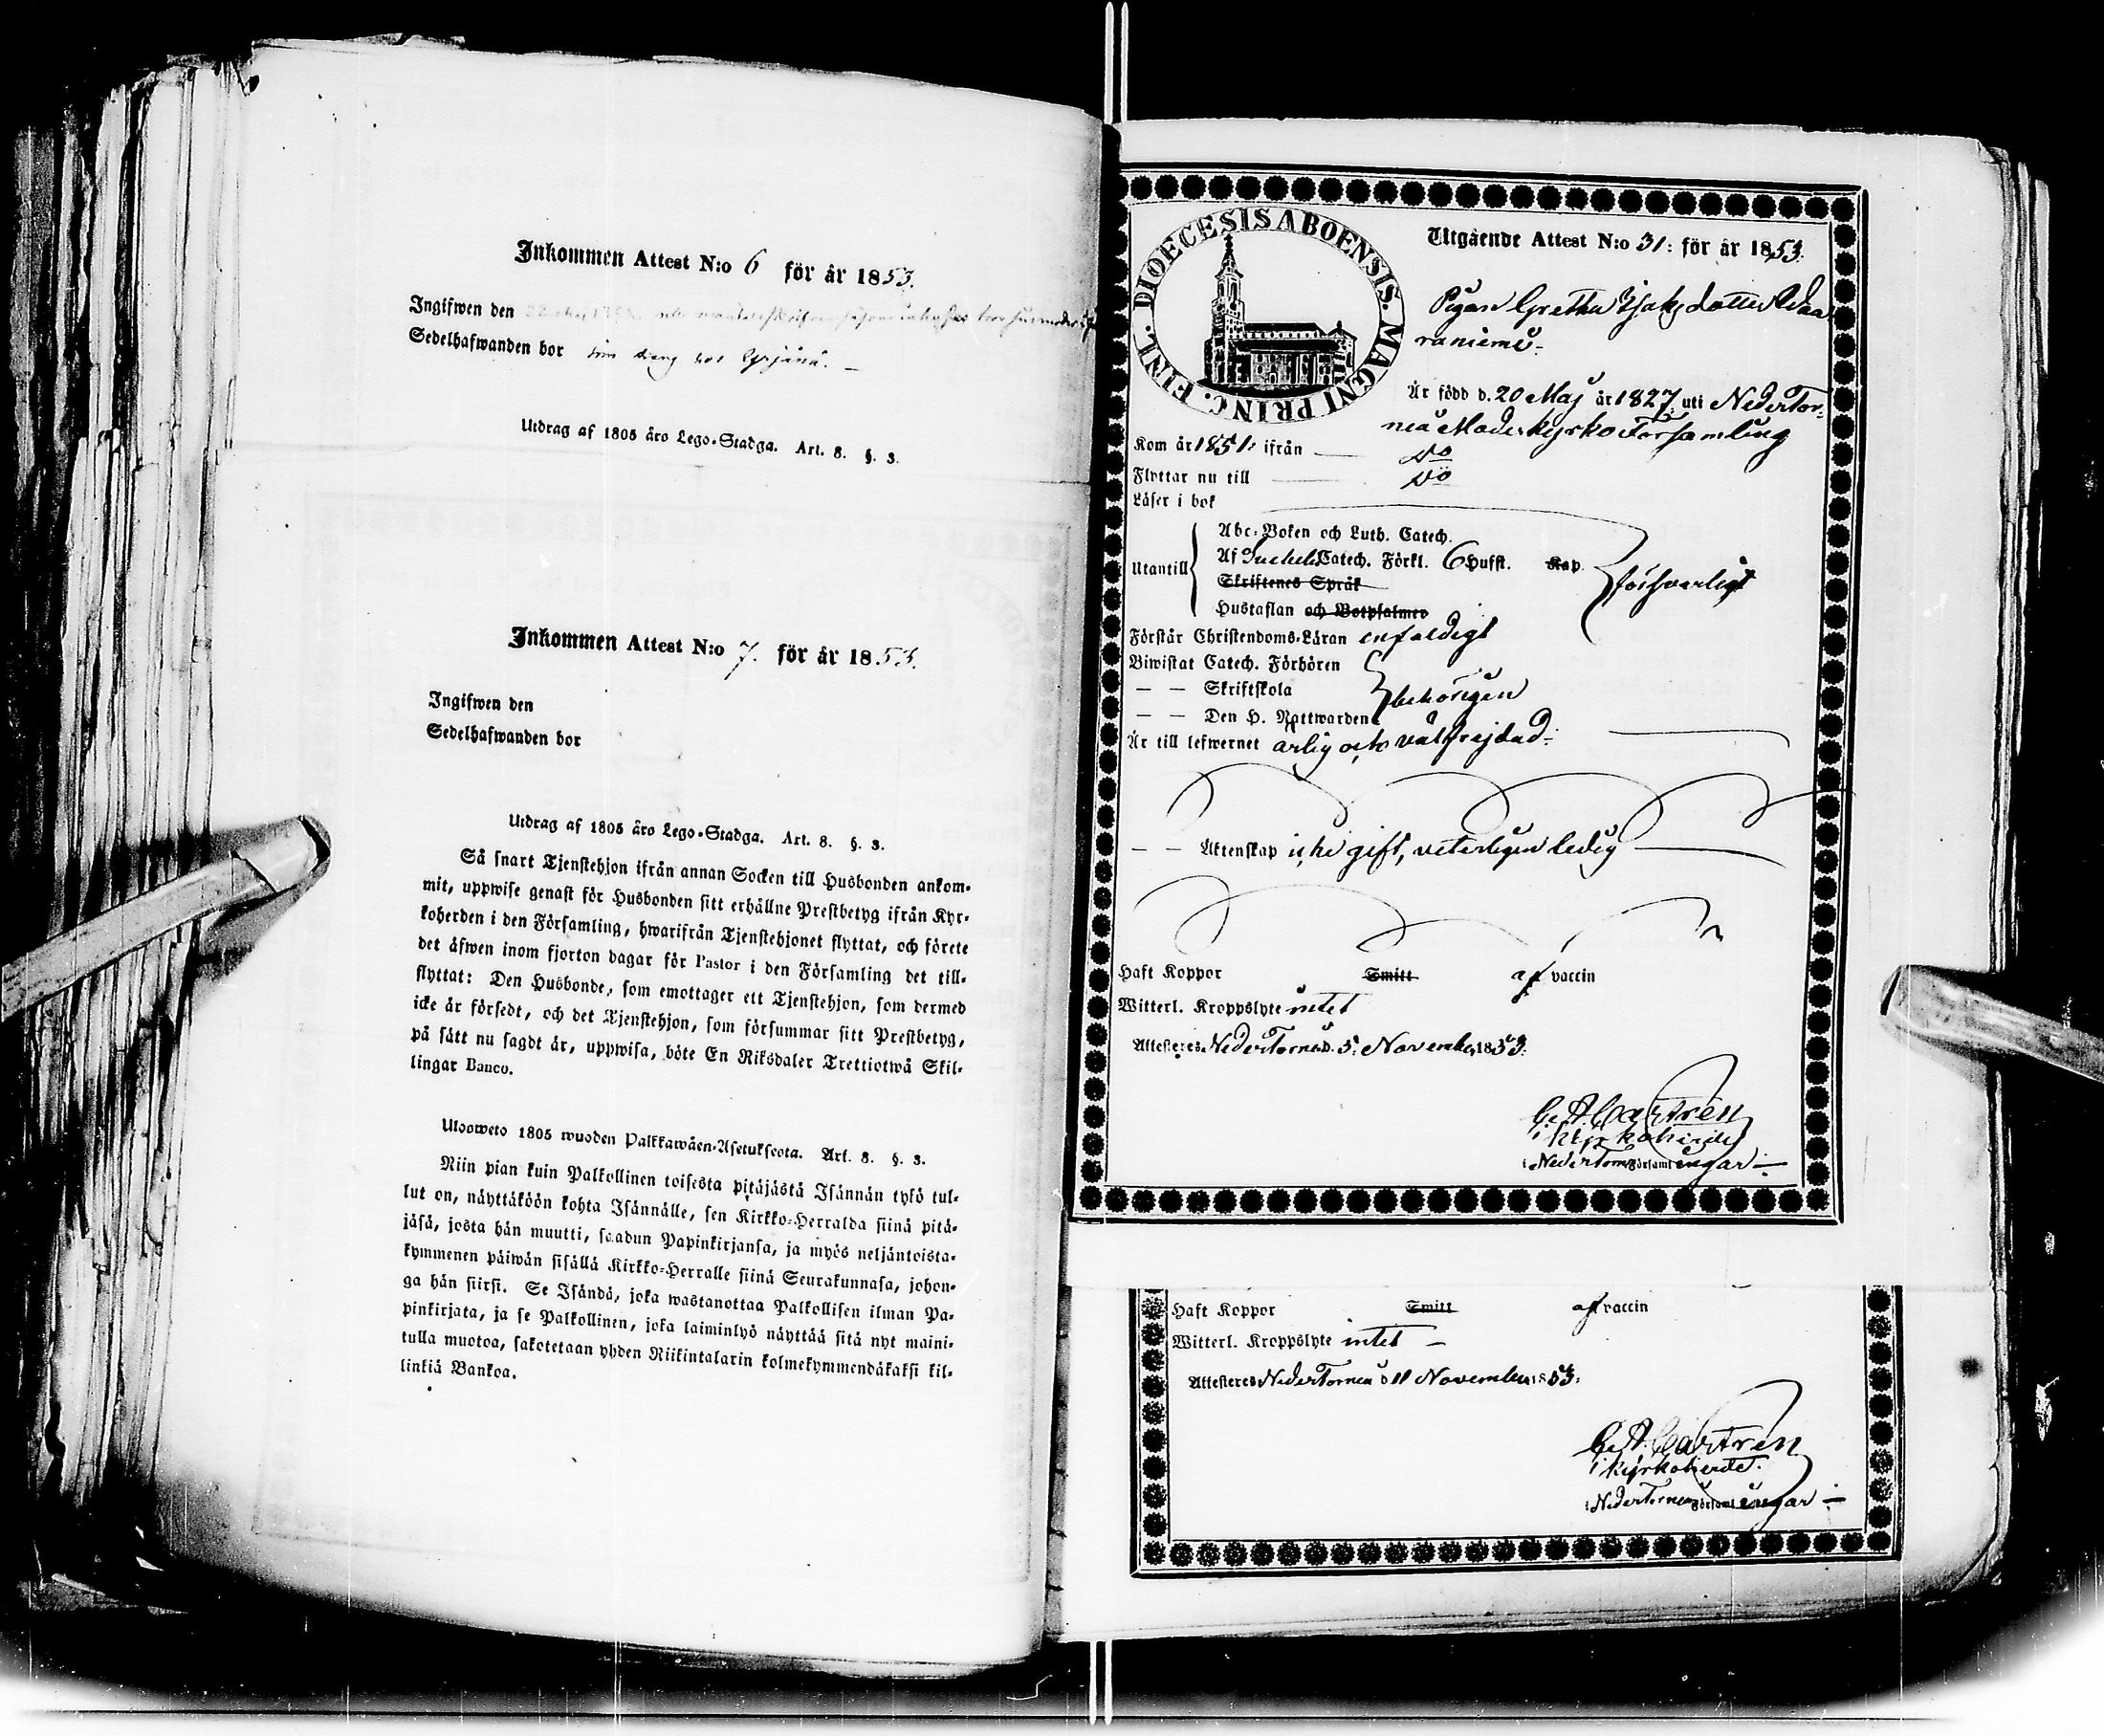 Inkommen Attest N:o 6 för år 1853.
Ingifwen den
Sedelhafwanden bor
Utdrag af 1805 åro Lego-Stadga. Art. 8. §. 3.
Inkommen Attest N:o 7. för år 1853.
Ingifwen den
Sedelhafwanden bor
Utdrag af 1805 åro Lego-Stadga. Art. 8. §. 3.
Så snart Tjenstehjon ifrån annan Socken till Husbonden ankom-
mit, uppwise genast för Husbonden sitt erhållne Prestbetyg ifrån Kyr-
koherden i den Församling, hwarifrån Tjenstehjonet flyttat, och förete
det äfwen inom fjorton dagar för Pastor i den Församling det till-
flyttat: Den Husbonde, som emottager ett Tjenstehjon, som dermed
icke är försedt, och det Tjenstehjon, som försummar sitt Prestbetyg,
på sätt nu sagdt är, uppwisa, böte En Riksdaler Trettiotwå Skil-
lingar Banco.
Ulosweto 1805 wuoden Palkkawäen-Asetuksesta. Art. 8. §. 3.
Niin pian kuin Palkollinen toisesta pitäjästä Isännän tykö tul-
lut on, näyttäköön kohta Isännälle, sen Kirkko-Herralda siinä pitä-
jäsä, josta hän muutti, saadun Papinkirjansa, ja myös neljäntoista-
kymmenen päiwän sisällä Kirkko-Herralle siinä Seurakunnasa, johon-
ga hän siirsi. Se Isändä, joka wastanottaa Palkollisen ilman Pa-
pinkirjata, ja se Palkollinen, joka laiminlyö näyttää sitä nyt maini-
tulla muotoa, sakotetaan yhden Riikintalarin kolmekymmendäkaksi kil-
linkiä Bankoa.
DIOECESIS ABOENSIS. MAGNI PRINC. FINL.
Utgående Attest N:o 31: för år 1853.
Pigan Gretha Isaksdotter Waa
raniemi:
Är född d. 20 Maj år 1827: uti NederTor-
neå Moderkyrko Församling
Kom år 1851: ifrån do
Flyttar nu till do
Läser i bok
Abc-Boken och Luth. Catech.
Utantill Af Catech. Förkl. 6 Hufst. Kap. försvarligt
Skriftenes Språk
Hustaflan och Botpsalmer
Förstår Christendoms-Läran enfaldigt
Biwistat Catech. Förhören
— — Skriftskola behörigen
— — Den H. Nattwarden
Är till lefwernet ärlig och välfrejdad:
— — Äktenskap icke gift, veterligen ledig
Haft Koppor Smitt af vaccin
Witterl. Kroppslyte intet
Attesteres NederTorneå d. 5: November 1853:
C. A. Castrén
Kyrkoherde
i NederTorneå Församlingar
Haft Koppor Smitt af vaccin
Witterl. Kroppslyte intet —
Attesteres NederTorneå d 11 November 1853:
C. A. Castrén
Kyrkoherde
i NederTorneå Församlingar —